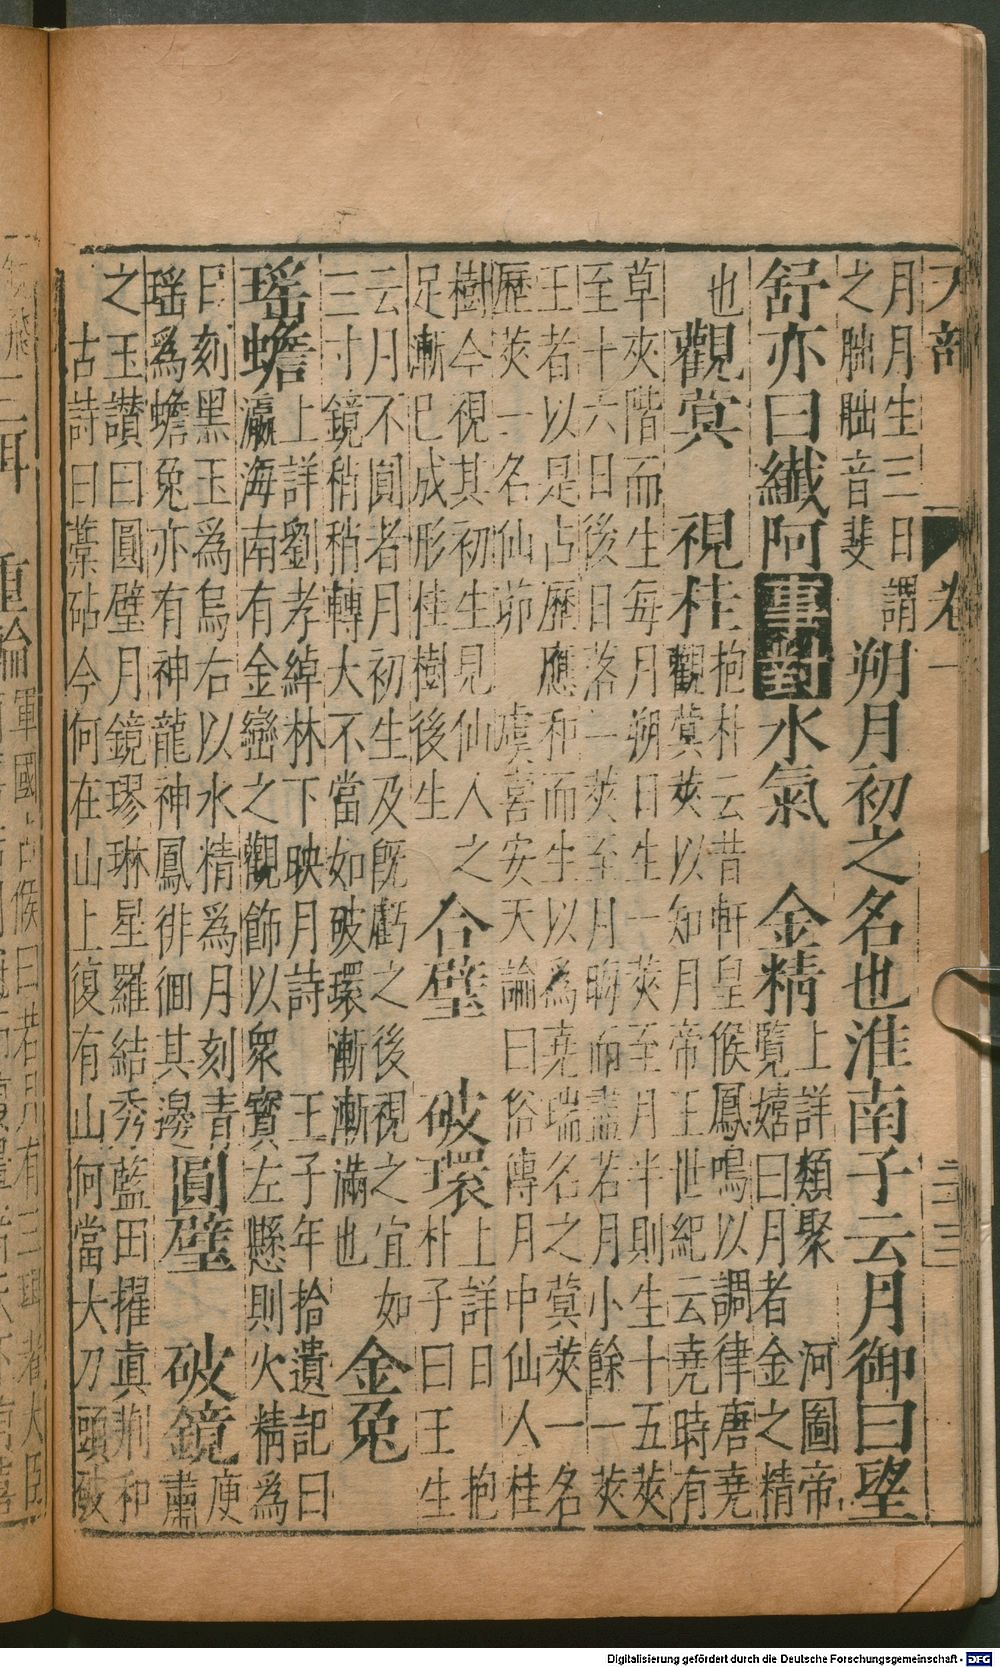 天部 卷一
月月生三日謂
之朏朏音斐
朔月初之名也淮南子云月御曰望
舒亦曰纖阿 事對 水氣 金精
上詳類聚 河圖帝
覽嬉曰月者金之精
也 觀蓂 視桂
抱朴云昔軒皇候鳳鳴以調律唐堯
觀蓂莢以知月帝王世紀云堯時有
草夾階而生每月朔日生一莢至月半則生十五莢
至十六日後日落一莢至月晦而盡若月小餘一莢
王者以是占歷應和而生以為堯瑞名之蓂莢一名
歷莢一名仙茆 虞喜安天論曰俗傳月中仙人桂
樹今視其初生見仙人之
足漸已成形桂樹後生
合璧 破環
上詳日 抱
朴子曰王生
云月不圓者月初生及既虧之後視之宜如
三寸鏡稍稍轉大不當如破環漸漸滿也
金兔
瑤蟾
上詳劉孝綽林下映月詩 王子年拾遺記曰
瀛海南有金巒之觀飾以衆寶左懸則火精為
日刻黑玉為烏右以水精為月刻青
瑤為蟾兔亦有神龍神鳳徘徊其邊
圓璧 破鏡
庾
肅
之玉讃曰圓璧月鏡璆琳星羅結秀藍田擢真荆和
古詩曰藁砧今何在山上復有山何當大刀頭破
Digitalisierung gefördert durch die Deutsche Forschungsgemeinschaft - DFG